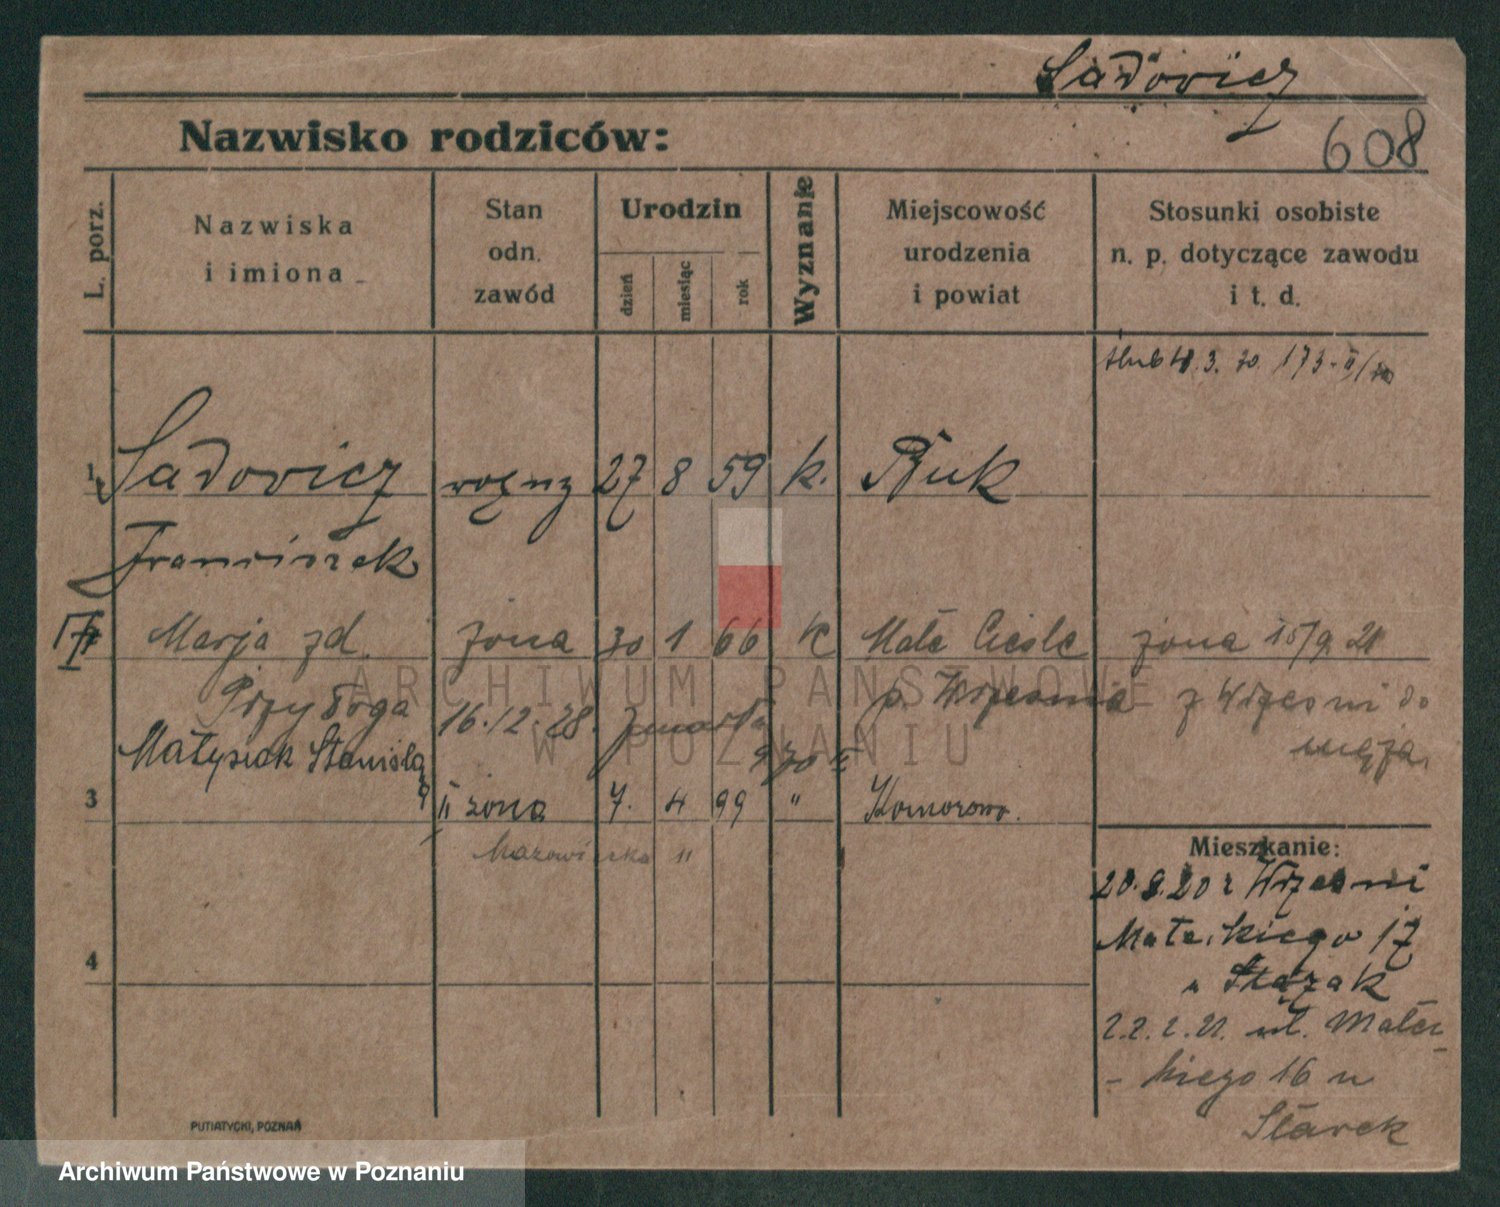 Sadovicz
Nazwisko rodziców:
608
L. porz.
Nazwiska
i imiona
Stan
odn.
zawód
Urodzin
dzień
miesiąc
rok
Wyznanie
Miejscowość
urodzenia
i powiat
Stosunki osobiste
n. p. dotyczące zawodu
i t. d.
ślub 3. 30. 173
1 Sadovicz 27 8 59 k. Buk
Franciszek
Marja zd. żona 30 1 66 K Małe żona 15/9 21
Przybyga p. Września z Wrześni do
16.12.28. zmarła
Matysiak Stanisła męża.
wa
3 II żona 7. 4 99 " Komorowo.
Mazowiecka 11
Mieszkanie:
20.9.20 z Wrześni
Matejkiego 17
u Stązak
4
22.2.21. ul. Matej-
-kiego 16 u
Starek
PUTIATYCKI, POZNAŃ
ARCHIWUM PAŃSTWOWE
W POZNANIU
Archiwum Państwowe w Poznaniu